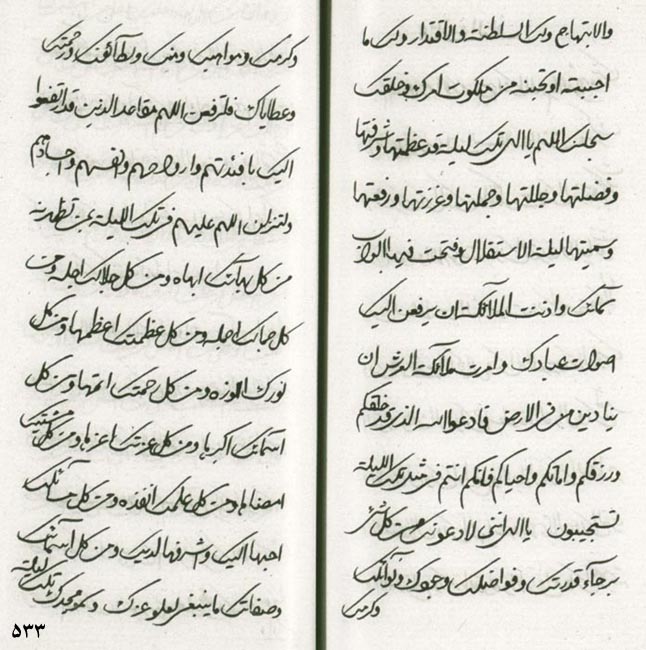 والابتهاج ولك السلطنة والاقتدار ولك ما
احببته او تحبنه من ملكوت امرك وخلقك
سبحانك اللهم يا الهى تلك ليلة قد عظمتها وشرفتها
وفضلتها وجللتها وجملتها وعززتها ورفعتها
وسميتها ليلة الاستقلال وفتحت فيها ابواب
سمائك واذنت الملائكة ان يرفعن اليك
اصوات عبادك وامرت ملائكة العرش ان
ينادين من فى الارض فادعوا الله الذى قد خلقكم
ورزقكم واماتكم واحياكم فانكم انتم فى مثل تلك الليلة
تستجيبون يا الهى اننى لادعونك من كل شئ
برجاء قدرتك وفواضلك وجودك ونوائلك
وكرمك
وكرمك ومواهبك ومنك وبطآئفك ورحمتك
وعطاياك فلترفعن اللهم مقاعد الذين قد ارتفعوا
اليك بافئدتهم وارواحهم وانفسهم واجسادهم
ولتنزلن اللهم عليهم فى تلك الليلة
من كل بهائك ابهاه ومن كل جلالك اجله ومن
كل جمالك اجمله ومن كل عظمتك اعظمها ومن كل
نورك انوره ومن كل رحمتك اتمها ومن كل
اسمائك اكبرها ومن كل عزتك اعزها ومن كل مشيتك
امضاها ومن كل علمك انفذه ومن كل مسائلك
احبها اليك واشرفها لديك ومن كل اسمائك
وصفاتك ما ينبغى لعلو عزك وسمو مجدك تلك ليلة
٥٣٣